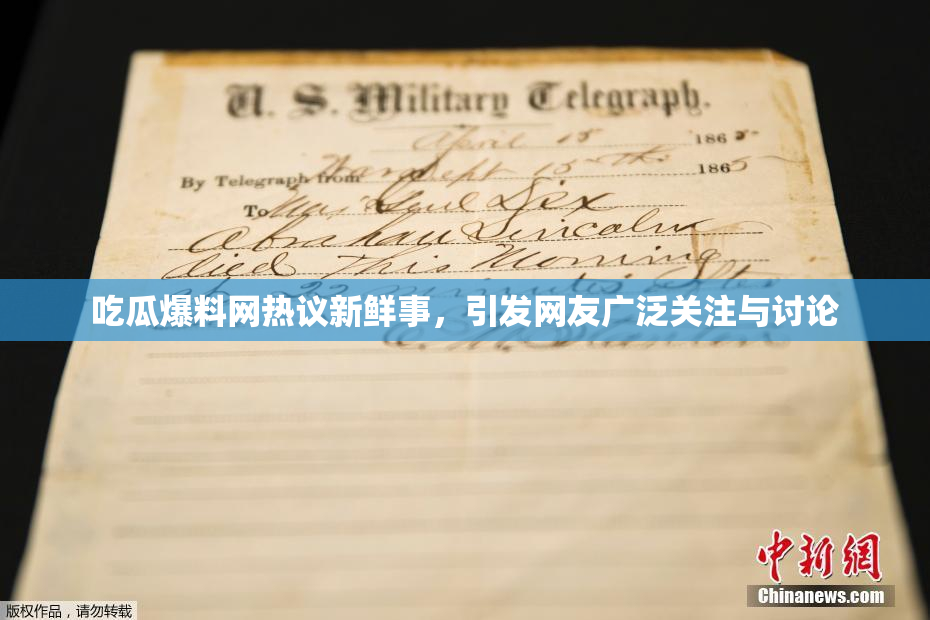 U. S. Military Telegraph.
April 15 1865
By Telegraph from War Dept 15th 1865
To Maj Genl Dix
Abraham Lincoln
died This Morning
at 22 minutes after
吃瓜爆料网热议新鲜事，引发网友广泛关注与讨论
E. M. Stanton
中新網
Chinanews.com
版权作品，请勿转载